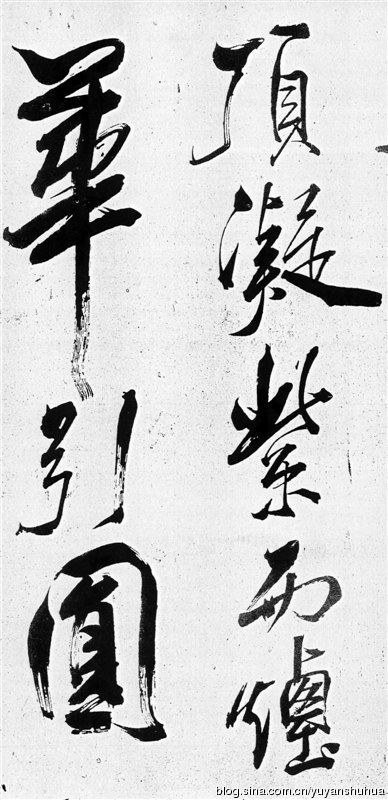 頂凝紫而煙
華引圓
blog.sina.com.cn/yuyanshuhua